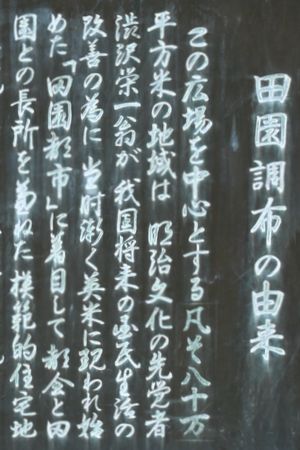 田園調布の由来
この広場を中心とする凡そ八十万
平方米の地域は 明治文化の先覚者
渋沢栄一翁が 我国将来の国民生活の
改善の為に 当時漸く英米に現われ始
めた「田園都市」に着目して 都会と田
園との長所を兼ねた 模範的住宅地